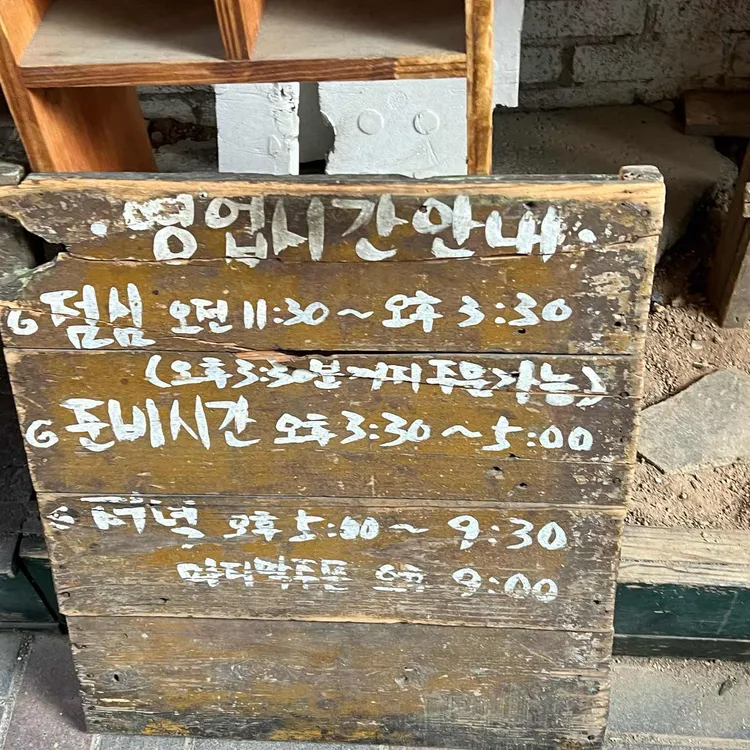 · 영업시간안내 ·
점심 오전 11:30 ~ 오후 3:30
(오후3:30분까지주문가능)
준비시간 오후 3:30 ~ 5:00
저녁 오후 5:00 ~ 9:30
마지막주문 오후 9:00